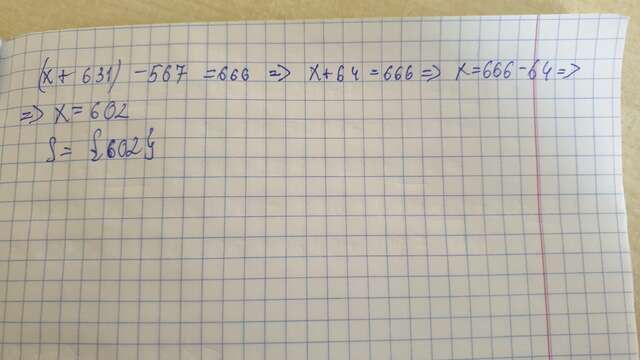 (x + 631) - 567 = 666 => x + 64 = 666 => x = 666 - 64 =>
=> x = 602
S = {602}